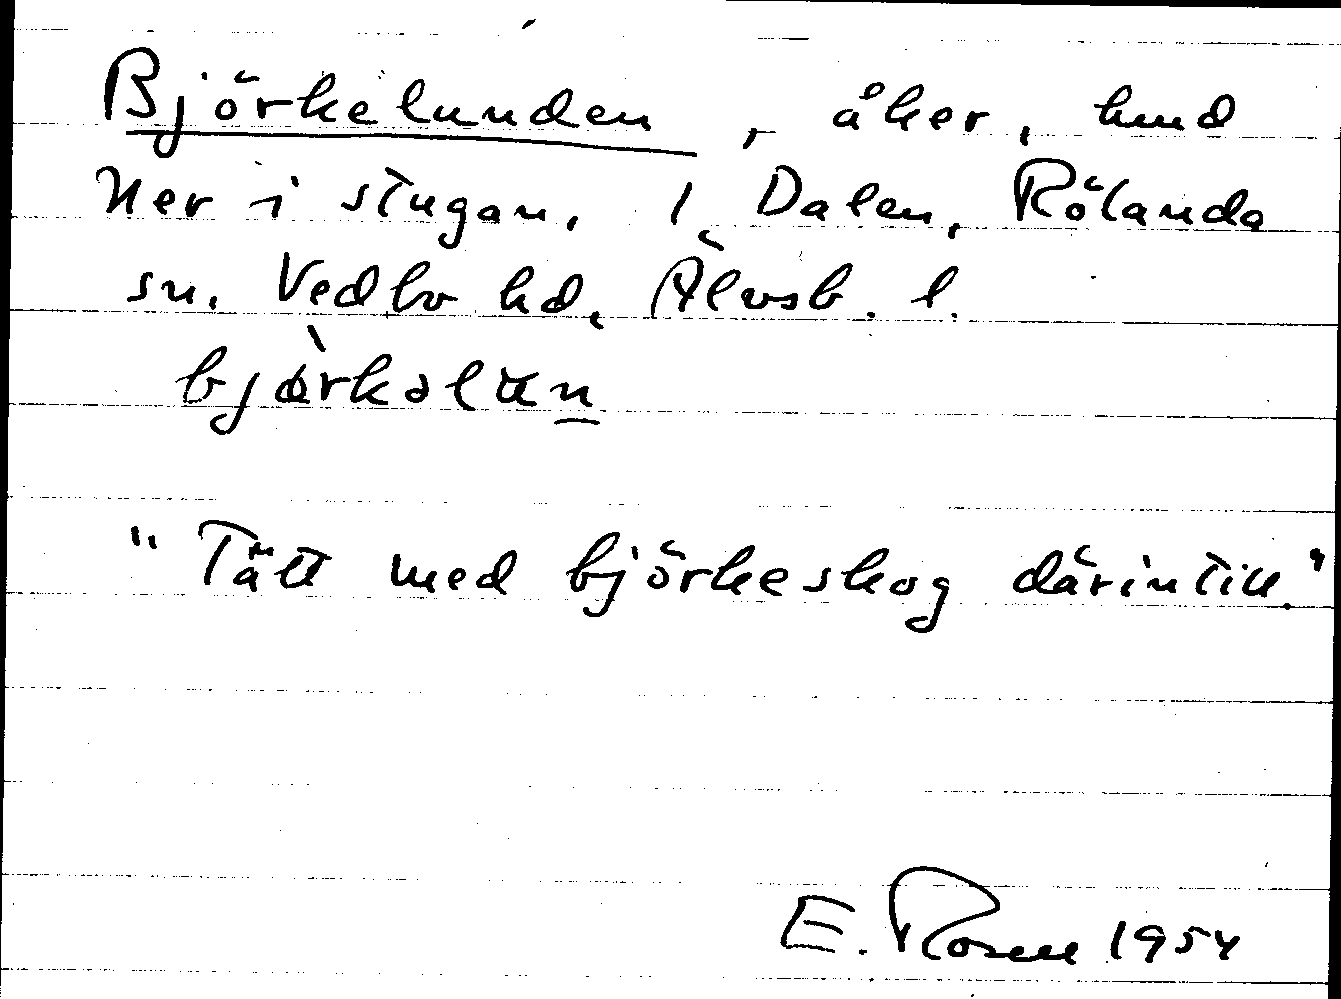 Björkelunden, åker, hmd
Ner i stugan, 1 Dalen, Rölanda
sn. Vedbo hd, Älvsb. l.
"Tätt med björkeskog därintill."
E. Rosell 1954